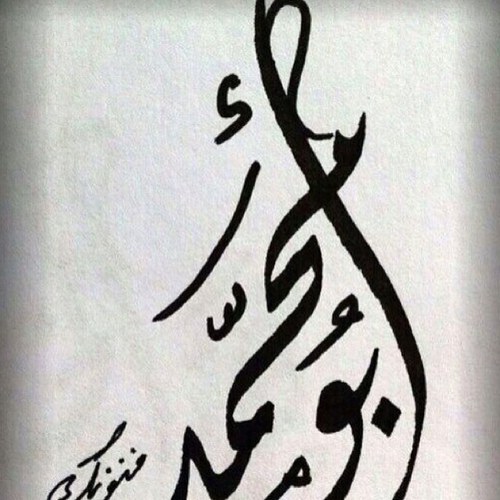 أبُو محمّد